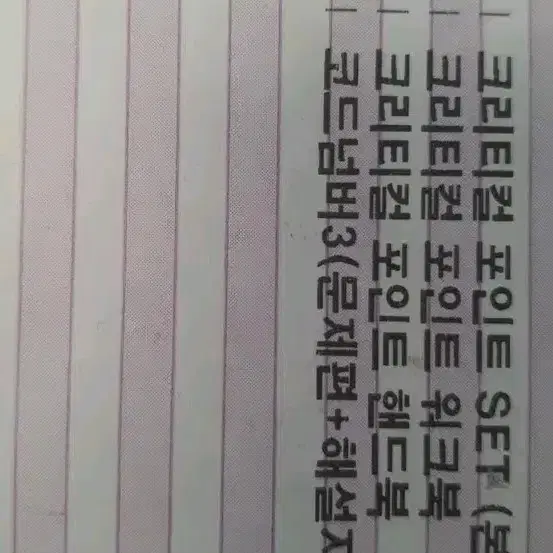 크리티컬 포인트 SET (본
크리티컬 포인트 워크북
크리티컬 포인트 핸드북
코드넘버3(문제편+해설지